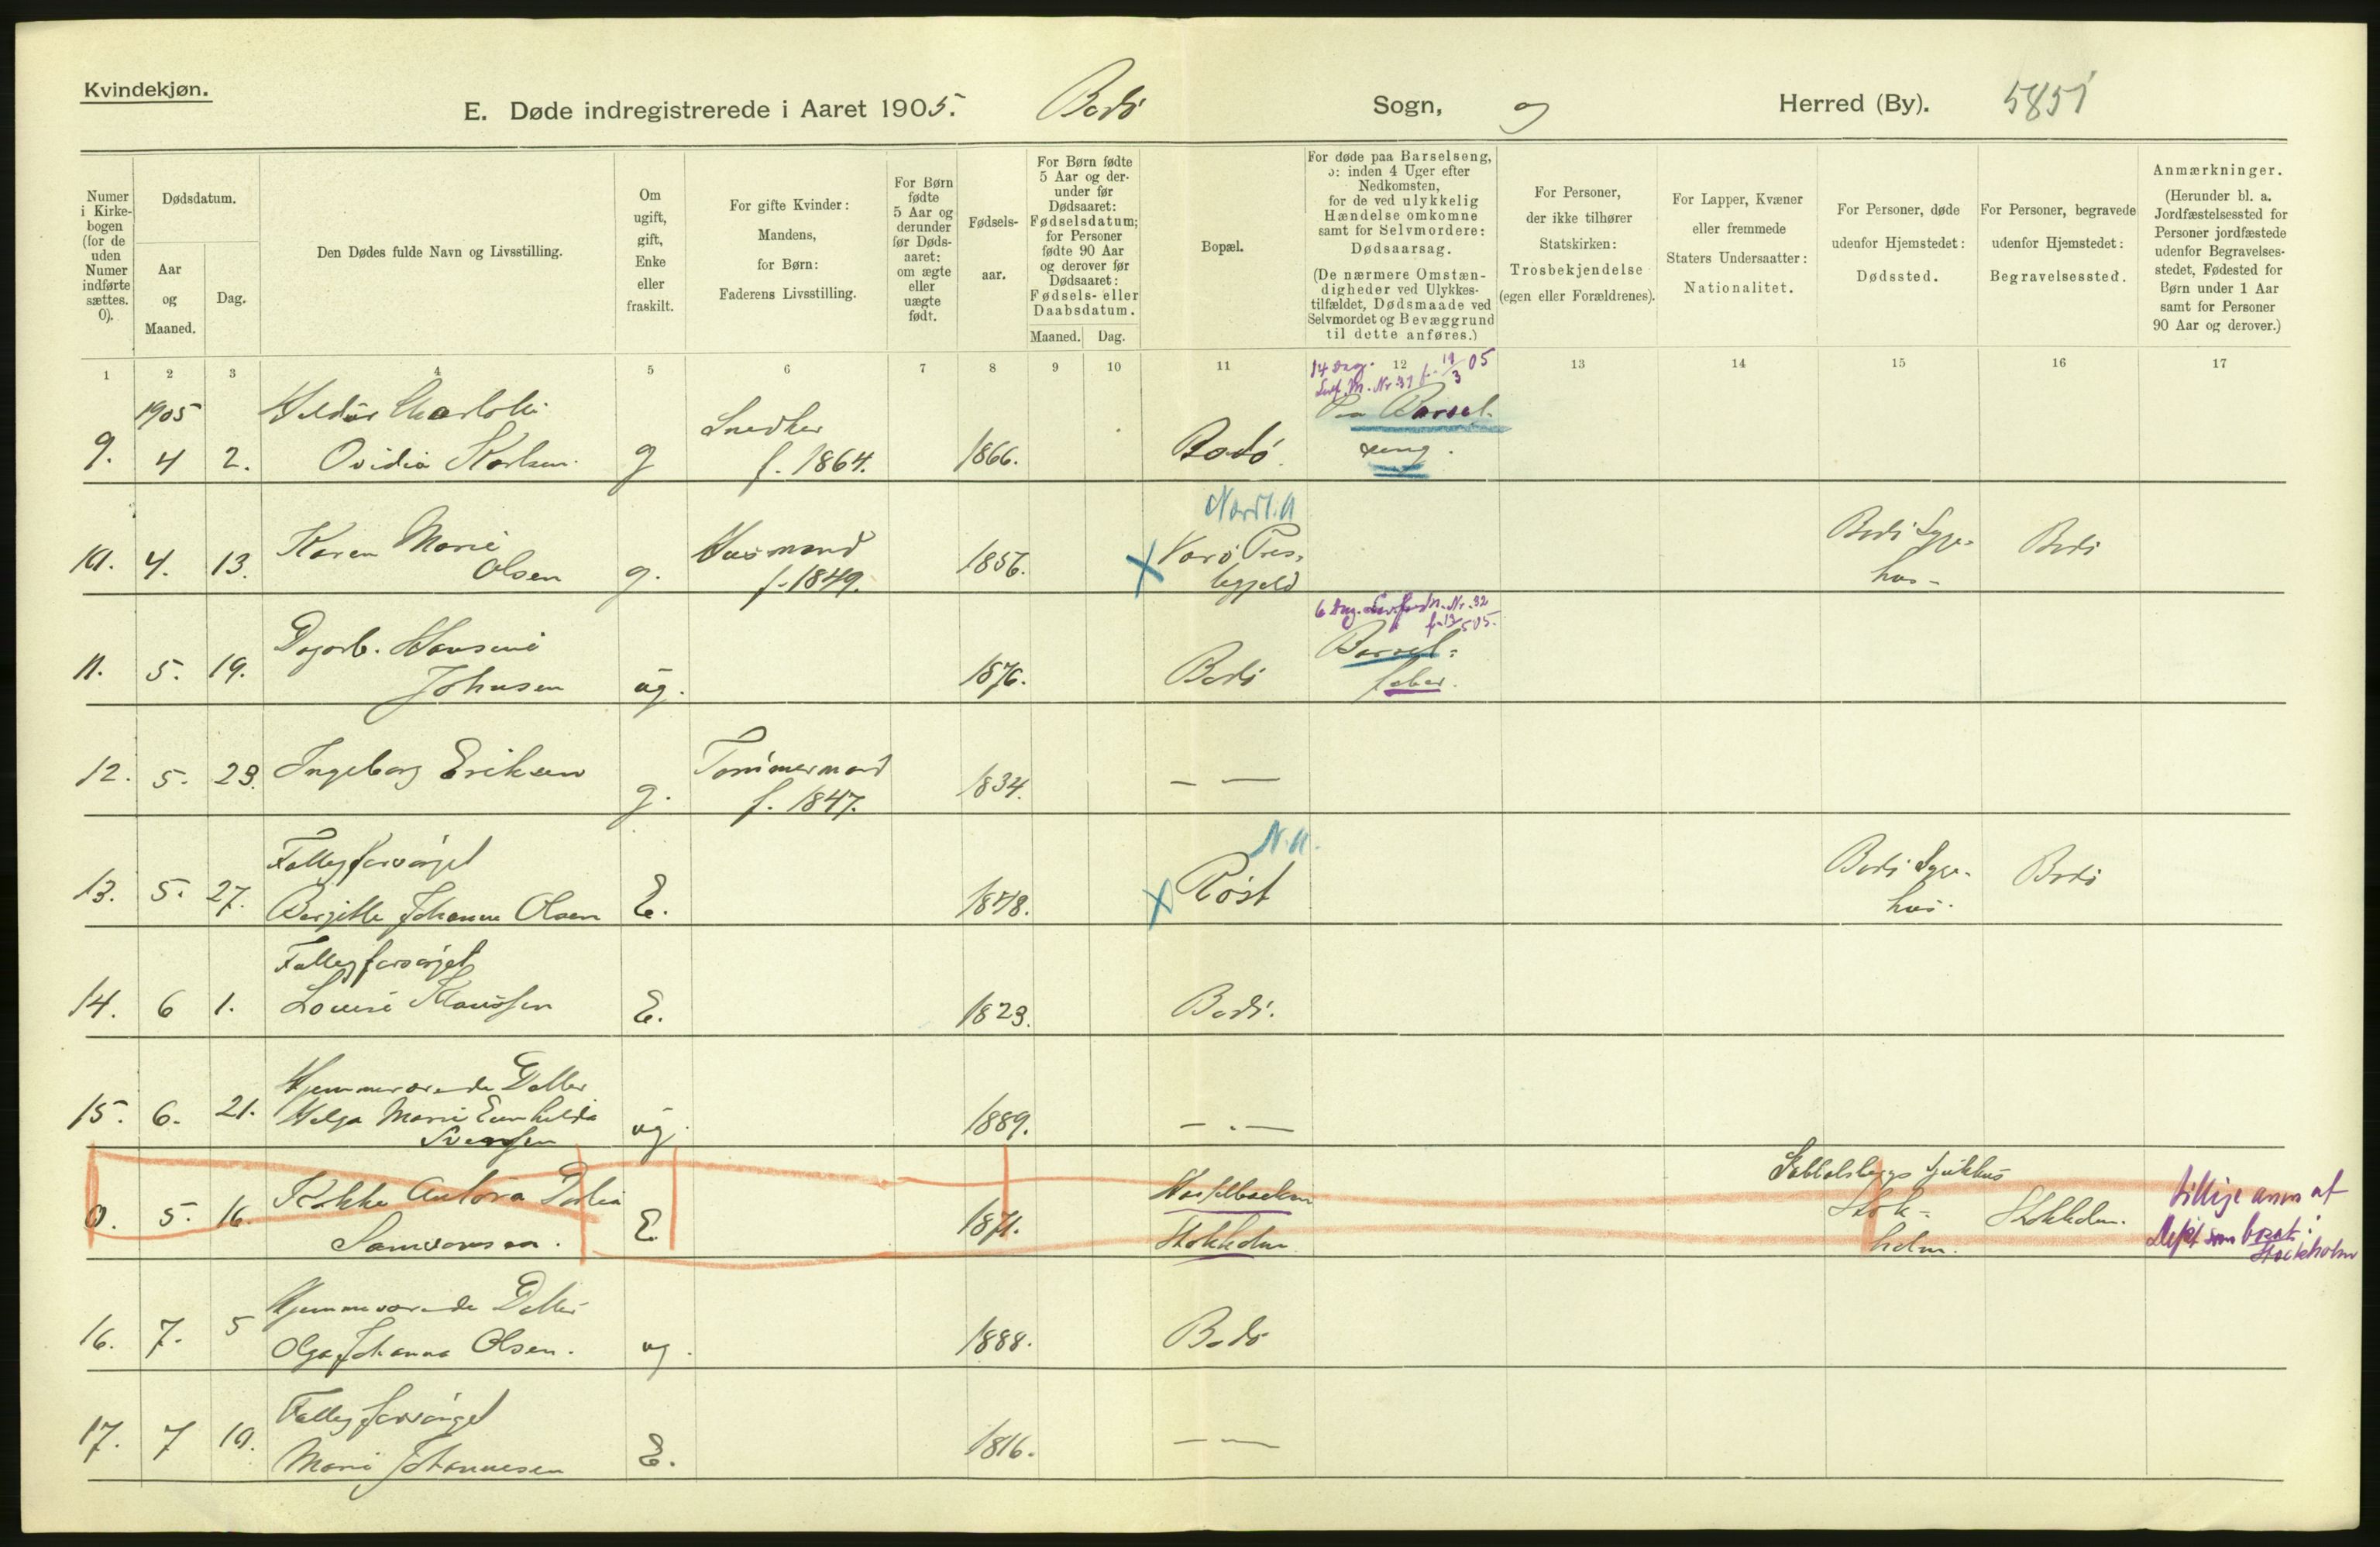 Kvindekjøn.
E. Døde indregistrerede i Aaret 1905. Bodö Sogn, og Herred (By). 5851
Numer i Kirke-bogen (for de uden Numer indførte sættes. 0).
Dødsdatum.
Aar og Maaned.
Dag.
Den Dødes fulde Navn og Livsstilling.
Om ugift, gift, Enke eller fraskilt.
For gifte Kvinder: Mandens, for Børn: Faderens Livsstilling.
For Børn fødte 5 Aar og derunder før Døds-aaret: om ægte eller uægte født.
Fødsels-aar.
For Børn fødte 5 Aar og der-under før Dødsaaret: Fødselsdatum; for Personer fødte 90 Aar og derover før Dødsaaret: Fødsels- eller Daabsdatum.
Maaned. Dag.
Bopæl.
For døde paa Barselseng, ɔ: inden 4 Uger efter Nedkomsten, for de ved ulykkelig Hændelse omkomne samt for Selvmordere: Dødsaarsag.
(De nærmere Omstæn-digheder ved Ulykkes-tilfældet, Dødsmaade ved Selvmordet og Bevæggrund til dette anføres.)
For Personer, der ikke tilhører Statskirken: Trosbekjendelse (egen eller Forældrenes).
For Lapper, Kvæner eller fremmede Staters Undersaatter: Nationalitet.
For Personer, døde udenfor Hjemstedet: Dødssted.
For Personer, begravede udenfor Hjemstedet: Begravelsessted.
Anmærkninger.
(Herunder bl. a. Jordfæstelsessted for Personer jordfæstede udenfor Begravelses-stedet, Fødested for Børn under 1 Aar samt for Personer 90 Aar og derover.)
1 2 3 4 5 6 7 8 9 10 11 12 13 14 15 16 17
14 Dag. Nr. 31 f. 19/3 05
1905
9. 4 2. Ovidia Karlsen g Snedker f. 1864. 1866. Bodö. Paa Barsel-
seng.
Nordl. A
10. 4. 13. Karen Marie Olsen g. Husmand f. 1849. 1856. X Værö Præs-
tegjeld Bodö Syge-
hus - Bodö
6 Dag. Nr. 32 f. 13/5 05.
11. 5. 19. Dagarb. Hansine
Johnsen ug. 1876. Bodö Barsel-
feber.
12. 5. 23. Ingeborg Eriksen g. Tömmermand
f. 1847. 1834. — —
N. A.
13. 5. 27. Fattigforsörget
Bergitte Johanne Olsen E. 1848. X Röst Bodö Syge-
hus. Bodö
14. 6 1. Fattigforsörget
Louise Klausen E. 1823. Bodö.
15. 6. 21. Hjemmeværende Datter
Helga Marie
Svensen ug. 1889. — . —
0. 5. 16. Kokke Aurora
E. 1871. Hasselbacken
Stokholm Sabbatsbergs sjukhus
Stok-
holm. Stokholm. tillige anm at
bosat i
Stockholm
16. 7. 5 Hjemmeværende Datter
Olga Johanna Olsen. ug. 1888. Bodö
17. 7 10. Fattigforsörget
Marie Johannesen E. 1816. — —